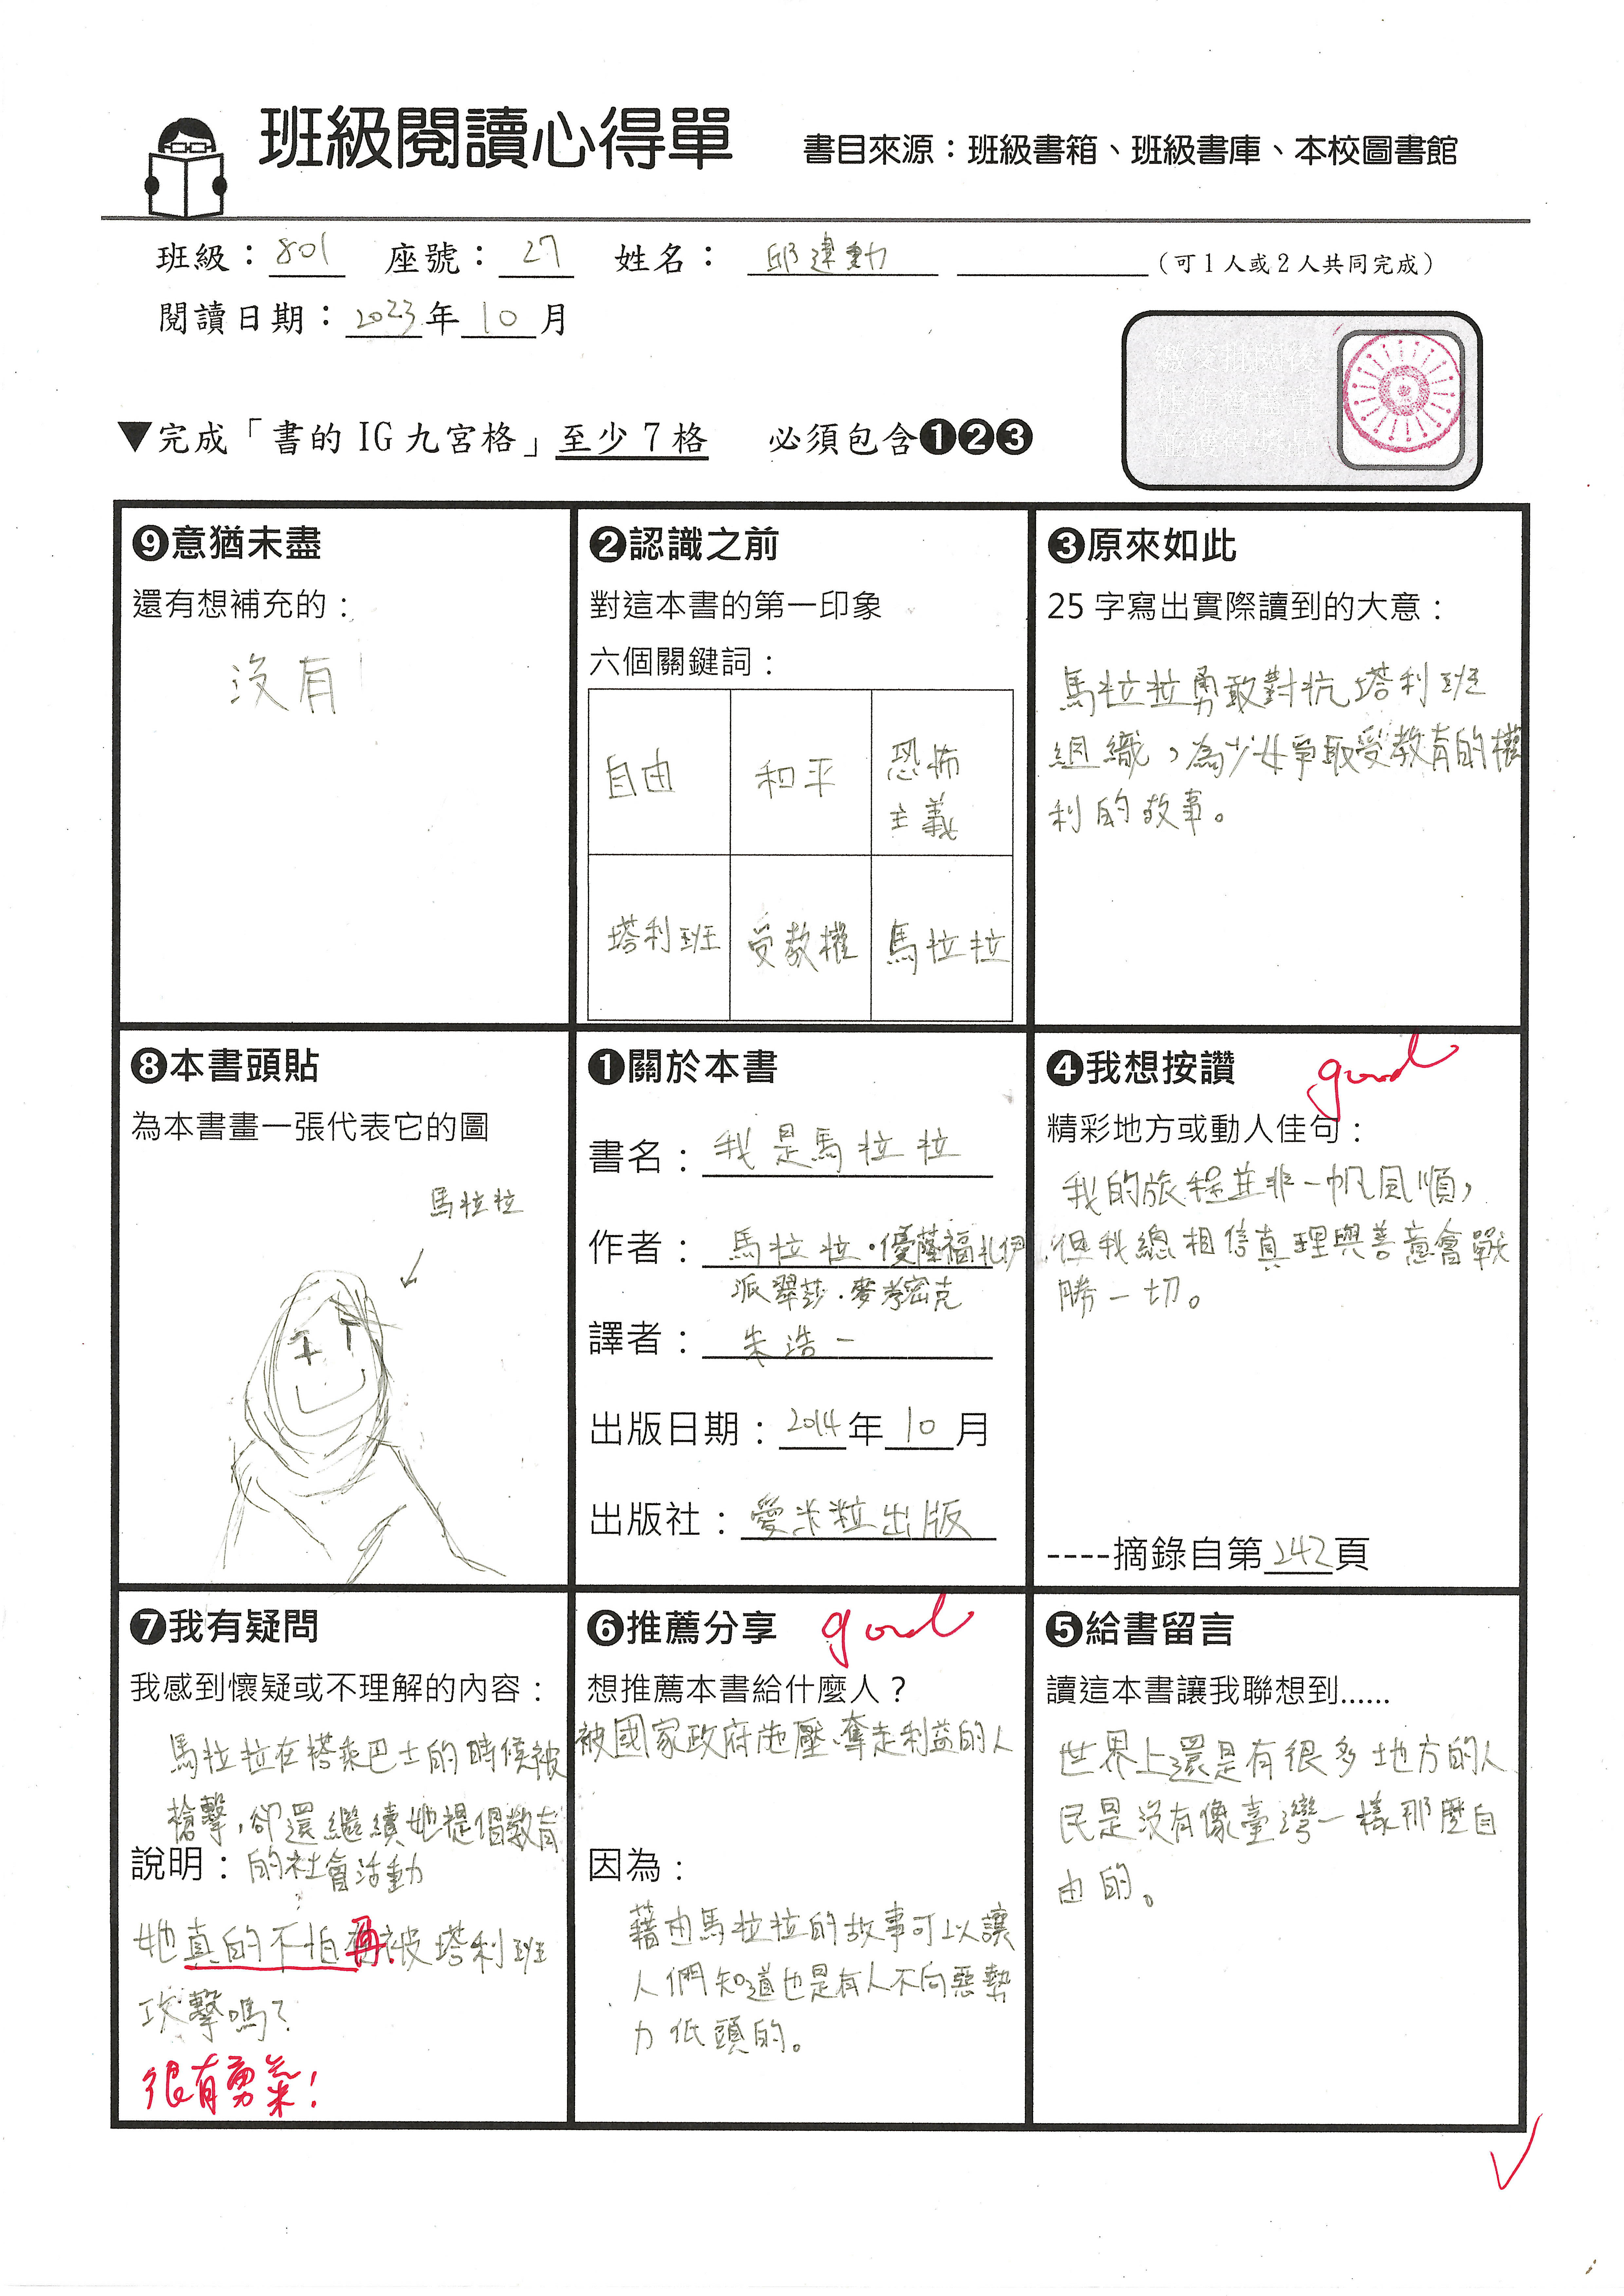 班級閱讀心得單
書目來源：班級書箱、班級書庫、本校圖書館
班級：801 座號：27 姓名：邱建勳 （可1人或2人共同完成）
閱讀日期：2023年10月
▼完成「書的IG九宮格」至少7格 必須包含❶❷❸
❾意猶未盡
還有想補充的：
沒有
❷認識之前
對這本書的第一印象
六個關鍵詞：
自由 和平 恐怖
主義
塔利班 受教權 馬拉拉
❸原來如此
25字寫出實際讀到的大意：
馬拉拉勇敢對抗塔利班
組織，為少女爭取受教育的權
利的故事。
❽本書頭貼
為本書畫一張代表它的圖
馬拉拉
❶關於本書
書名：我是馬拉拉
作者：馬拉拉·優薩福扎伊
派翠莎·麥考密克
譯者：朱浩一
出版日期：2014年10月
出版社：愛米粒出版
❹我想按讚 good
精彩地方或動人佳句：
我的旅程並非一帆風順，
但我總相信真理與善意會戰
勝一切。
----摘錄自第242頁
❼我有疑問
我感到懷疑或不理解的內容：
馬拉拉在搭乘巴士的時候被
槍擊，卻還繼續她提倡教育
說明：的社會活動
她真的不怕再被塔利班
攻擊嗎？
很有勇氣！
❻推薦分享 good
想推薦本書給什麼人？
被國家政府施壓、奪走利益的人
因為：
藉由馬拉拉的故事可以讓
人們知道也是有人不向惡勢
力低頭的。
❺給書留言
讀這本書讓我聯想到……
世界上還是有很多地方的人
民是沒有像臺灣一樣那麼自
由的。